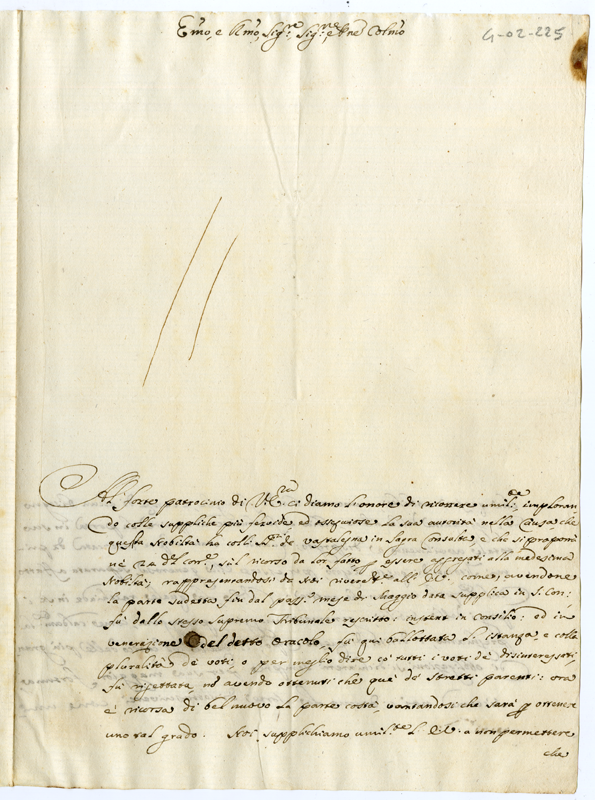 Emo, e Rmo, Sigre, Sigre, e Pne Colmo
G-02-225
Al forte patrocinio di V. Emza ci diamo l'onore di ricorrere umile imploran
do colle suppliche più fervide, ed ossequiose la sua autorità nella Causa che
questa Nobiltà ha colli Sri de in Sagra Consulta, e che si proponi
rà 24 del corre, sul ricorso da lor fatto per essere aggregati alla medesima
Nobiltà, rappresentandosi da Noi all' E. V. come, avendone
la parte sudetta fin dal passo mese di Maggio data supplica in S. Con:
fù dallo stesso Supremo Tribunale rescritto: in Consilio: ed in
venerazione del detto Oracolo, fù qui ballottata l'istanza, e colla
pluralità de voti, o per meglio dire cò tutti i voti de' disinteressati,
fù rigettata, nò avendo ottenuti che quei de' stretti parenti: ora
è ricorsa di bel nuovo la parte costà, vantandosi che sarà per ottenere
uno tal grado. Noi supplichiamo umilte l' E. V. a non permettere
che